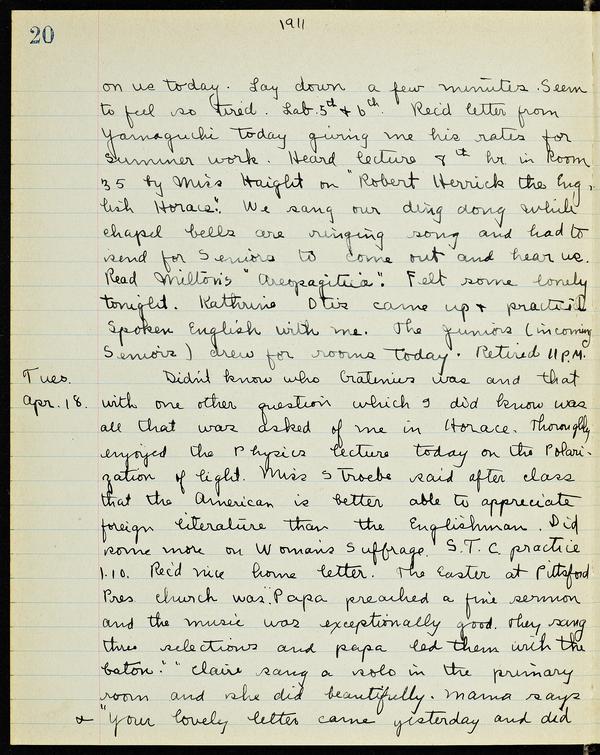 1911
20
on us today. Lay down a few minutes. Seem
to feel so tired. Lab. 5th & 6th. Rec'd letter from
Yamaguchi today giving me his rates for
summer work. Heard lecture 8th hr. in Room
35 by Miss Haight on "Robert Herrick the Eng-
lish Horace". We sang our ding dong while
chapel bells are ringing song and had to
send for Seniors to come out and hear us.
Read Milton's "Areopagitica". Felt some lonely
tonight. Kathrine Otis came up & practiced
Spoken English with me. The juniors (incoming
Seniors) drew for rooms today. Retired 11 P.M.
Tues. Didn't know who Cratenius was and that
Apr. 18. with one other question which I did know was
all that was asked of me in Horace. Thoroughly
enjoyed the Physics lecture today on the Polari-
zation of light. Miss Stroebe said after class
that the American is better able to appreciate
foreign literature than the Englishman. Did
some more on Woman's Suffrage. S.T.C. practice
1.10. Rec'd nice home letter. The Easter at Pittsford
Pres. church was "Papa preached a fine sermon
and the music was exceptionally good. They sang
three selections and papa led them with the
baton." "Claire sang a solo in the primary
room and she did beautifully. Mama says
"Your lovely letter came yesterday and did